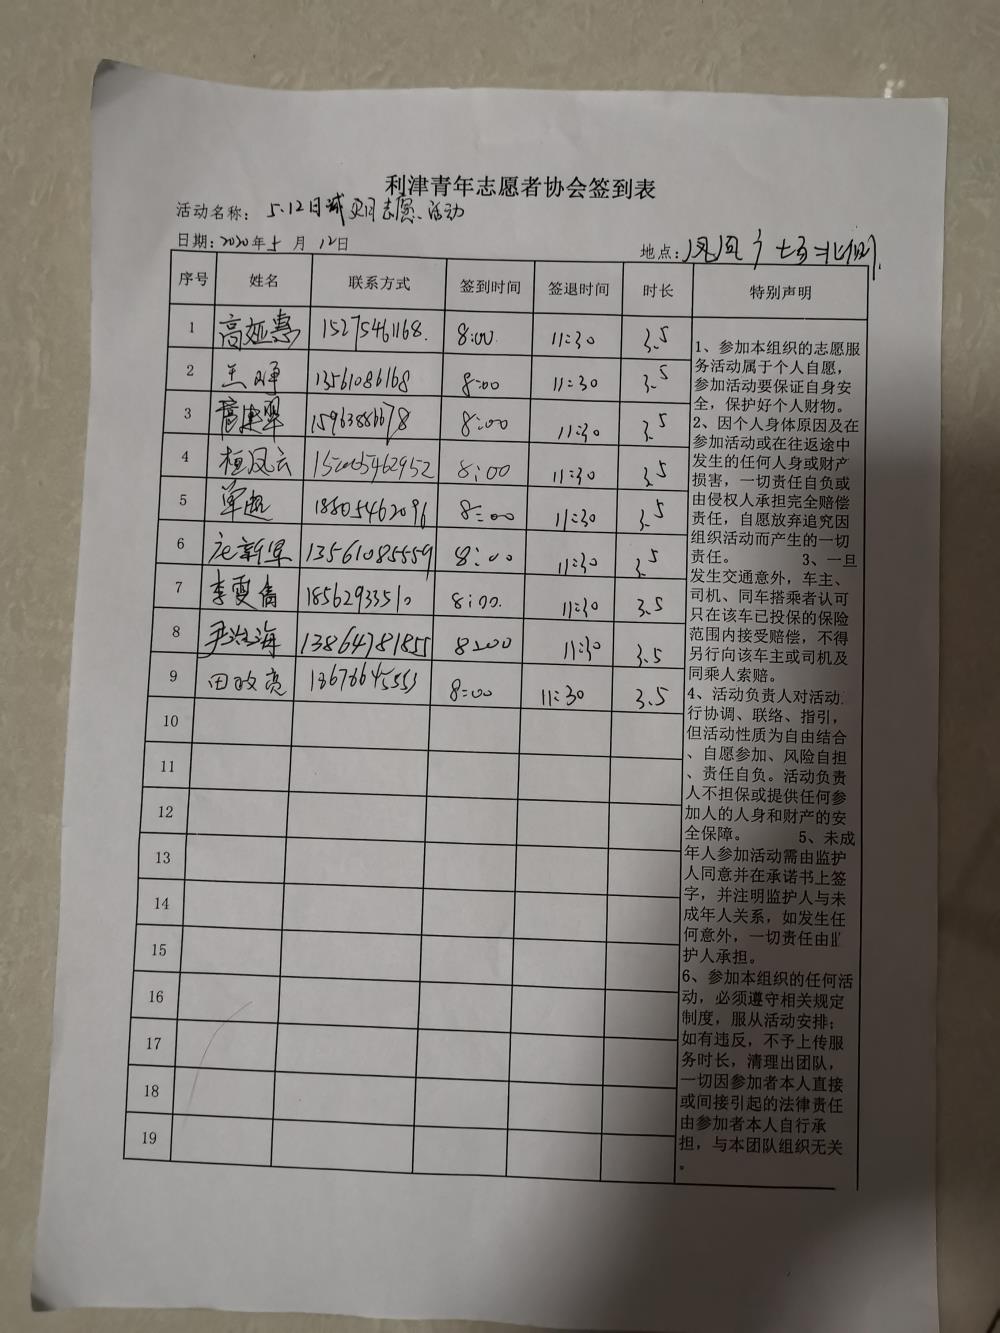 利津青年志愿者协会签到表
活动名称: 5.12日城 志愿活动
日期:2020年5月12日
地点:凤凰广场北侧
序号 姓名 联系方式 签到时间 签退时间 时长 特别声明
1 高延惠 15275461168 8:00 11:30 3.5
2 13561086168 8:00 11:30 3.5
3 15963886678 8:00 11:30 3.5
4 桓凤云 8:00 11:30 3.5
5 单超 18805462096 8:00 11:30 3.5
6 13561085559 8:00 11:30 3.5
7 李雯倩 18562933510 8:00 11:30 3.5
8 尹海 13864781855 8:00 11:30 3.5
9 田 亮 13676645553 8:00 11:30 3.5
10
11
12
13
14
15
16
17
18
19
1、参加本组织的志愿服
务活动属于个人自愿,
参加活动要保证自身安
全,保护好个人财物。
2、因个人身体原因及在
参加活动或在往返途中
发生的任何人身或财产
损害,一切责任自负或
由侵权人承担完全赔偿
责任,自愿放弃追究因
组织活动而产生的一切
责任。 3、一旦
发生交通意外,车主、
司机、同车搭乘者认可
只在该车已投保的保险
范围内接受赔偿,不得
另行向该车主或司机及
同乘人索赔。
4、活动负责人对活动
行协调、联络、指引,
但活动性质为自由结合
、自愿参加、风险自担
、责任自负。活动负责
人不担保或提供任何参
加人的人身和财产的安
全保障。 5、未成
年人参加活动需由监护
人同意并在承诺书上签
字,并注明监护人与未
成年人关系,如发生任
何意外,一切责任由
护人承担。
6、参加本组织的任何活
动,必须遵守相关规定
制度,服从活动安排;
如有违反,不予上传服
务时长,清理出团队,
一切因参加者本人直接
或间接引起的法律责任
由参加者本人自行承
担,与本团队组织无关
。